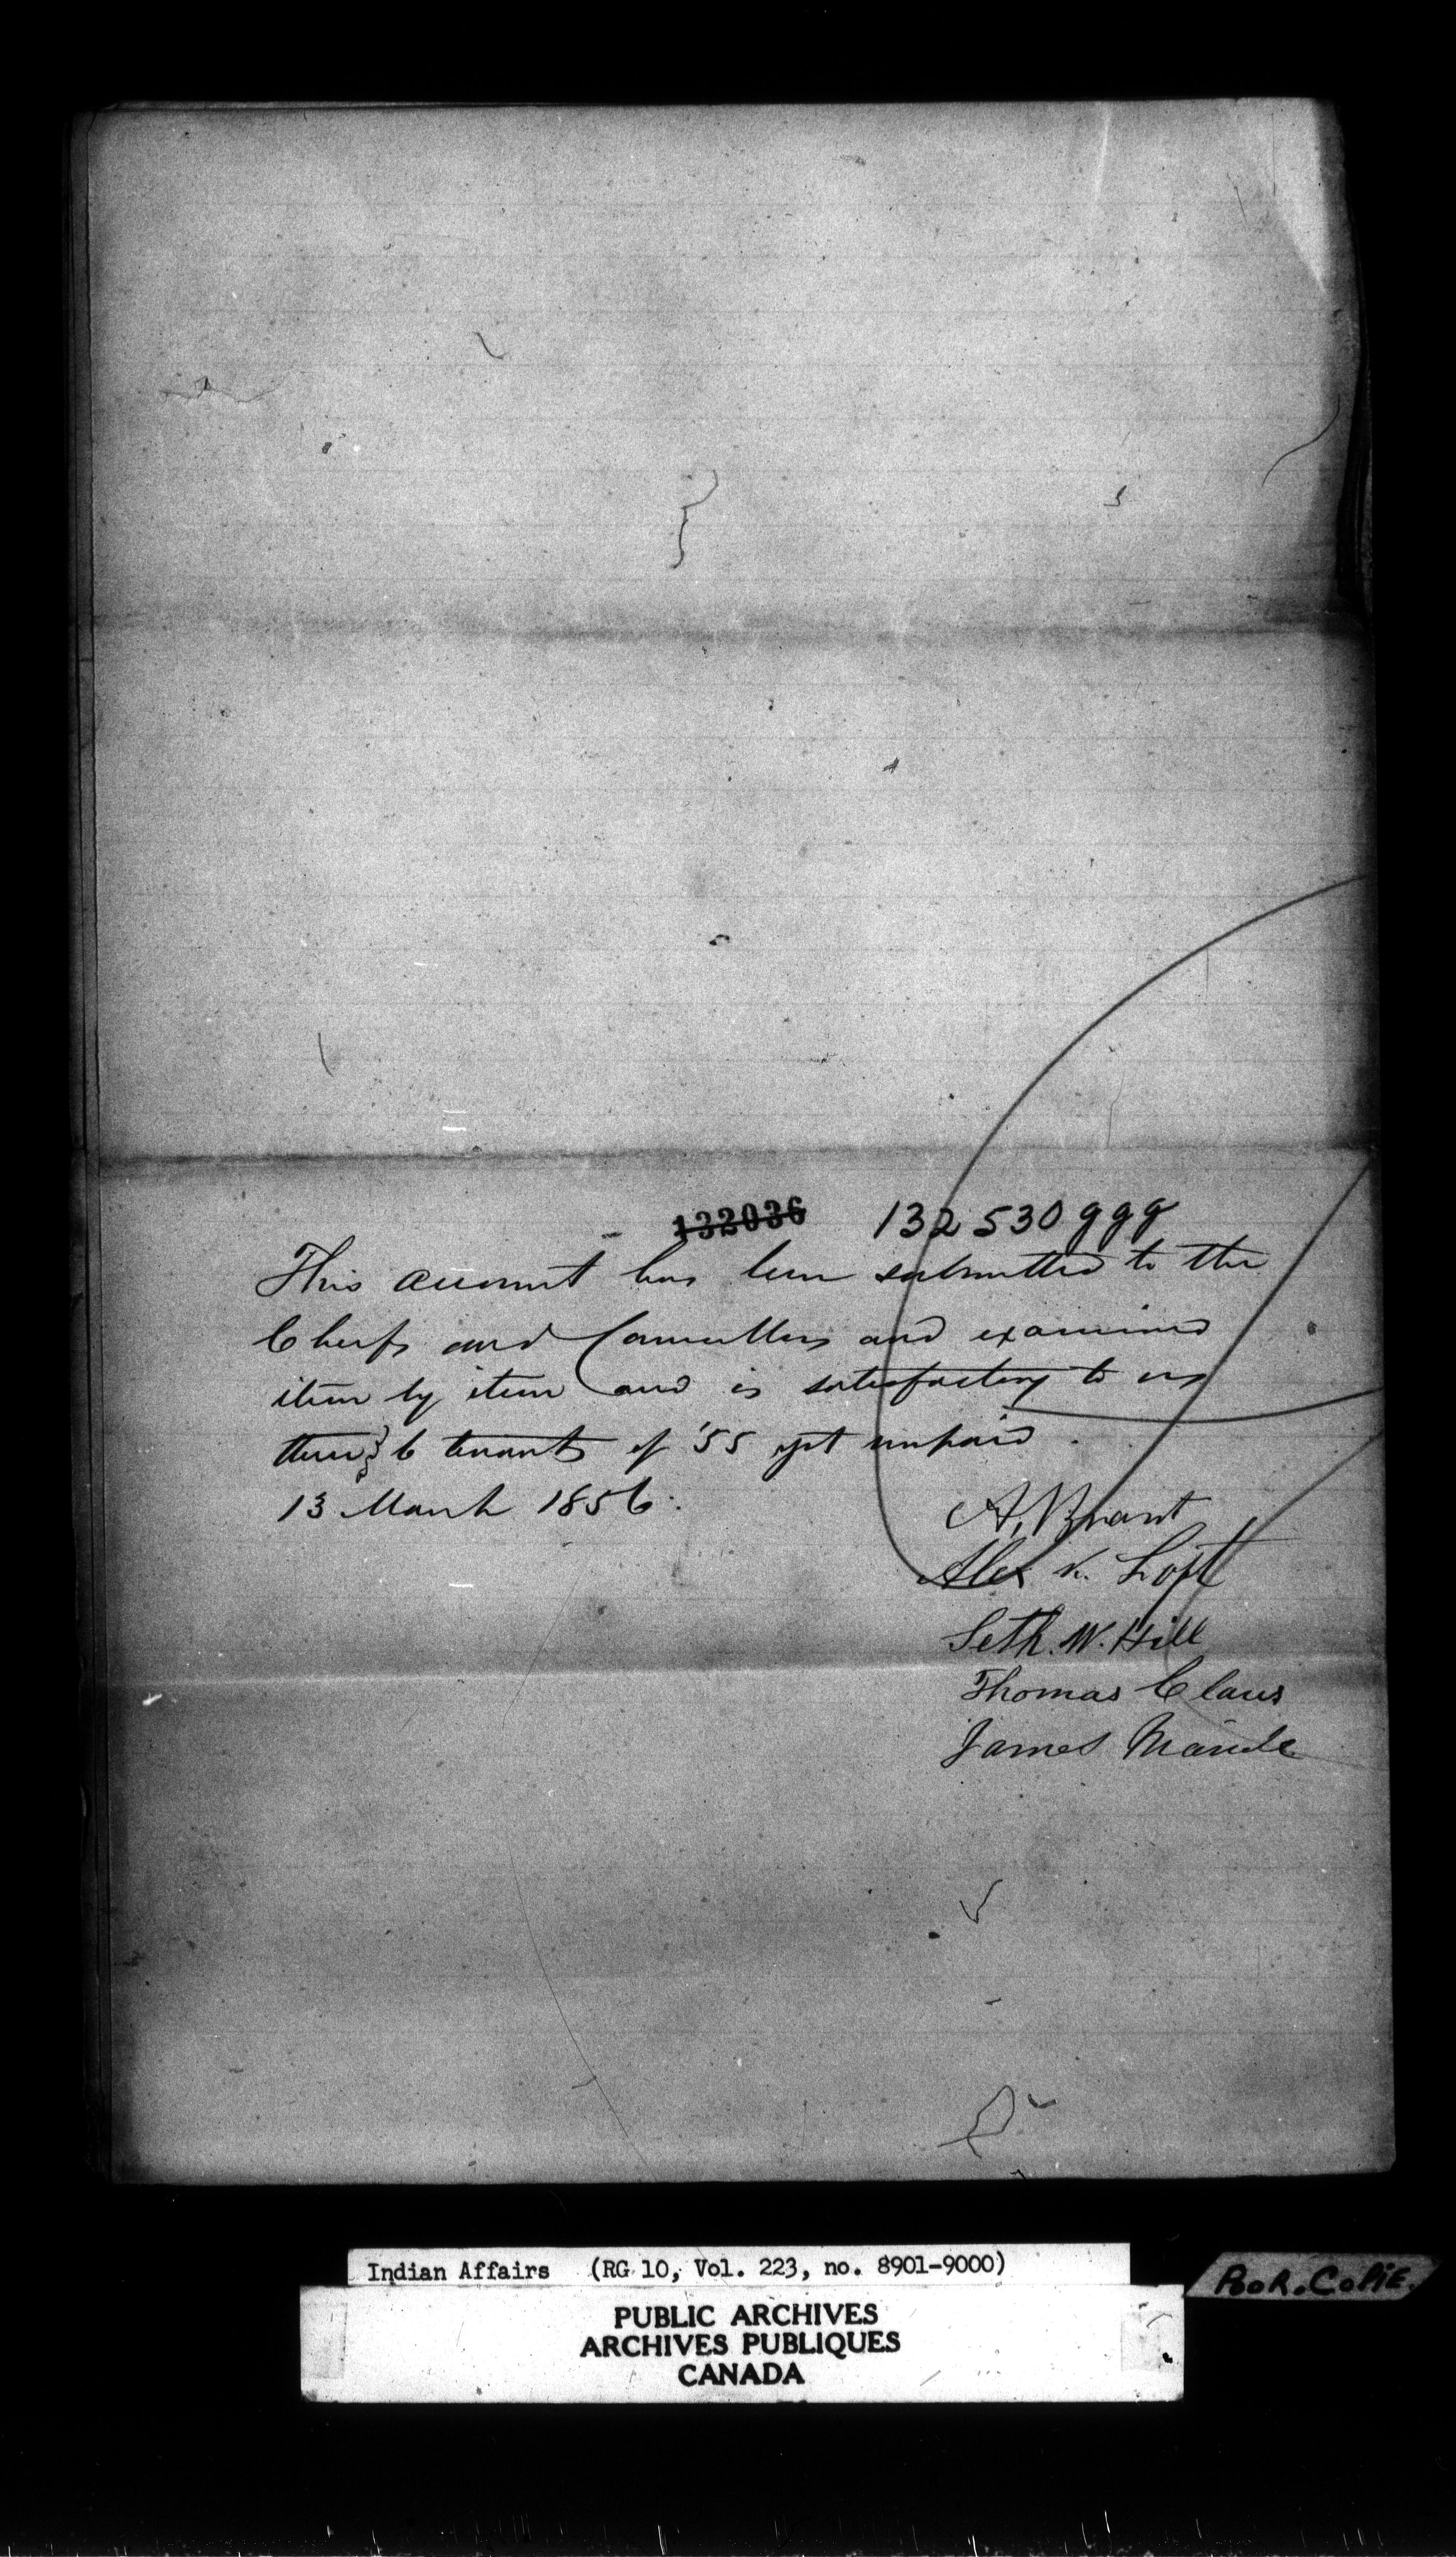 132036 132530 ggg
This account has been submitted to the
Chiefs and Councillors and examined
item by item and is satisfactory to us
there 6 tenants of '55 yet unpaid.
13 March 1856.
A. Brant
Alex K. Loft
Seth. W. Hill
Thomas Claus
James Maracle
Indian Affairs (RG 10, Vol. 223, no. 8901-9000)
PooR.CoPiE.
PUBLIC ARCHIVES
ARCHIVES PUBLIQUES
CANADA